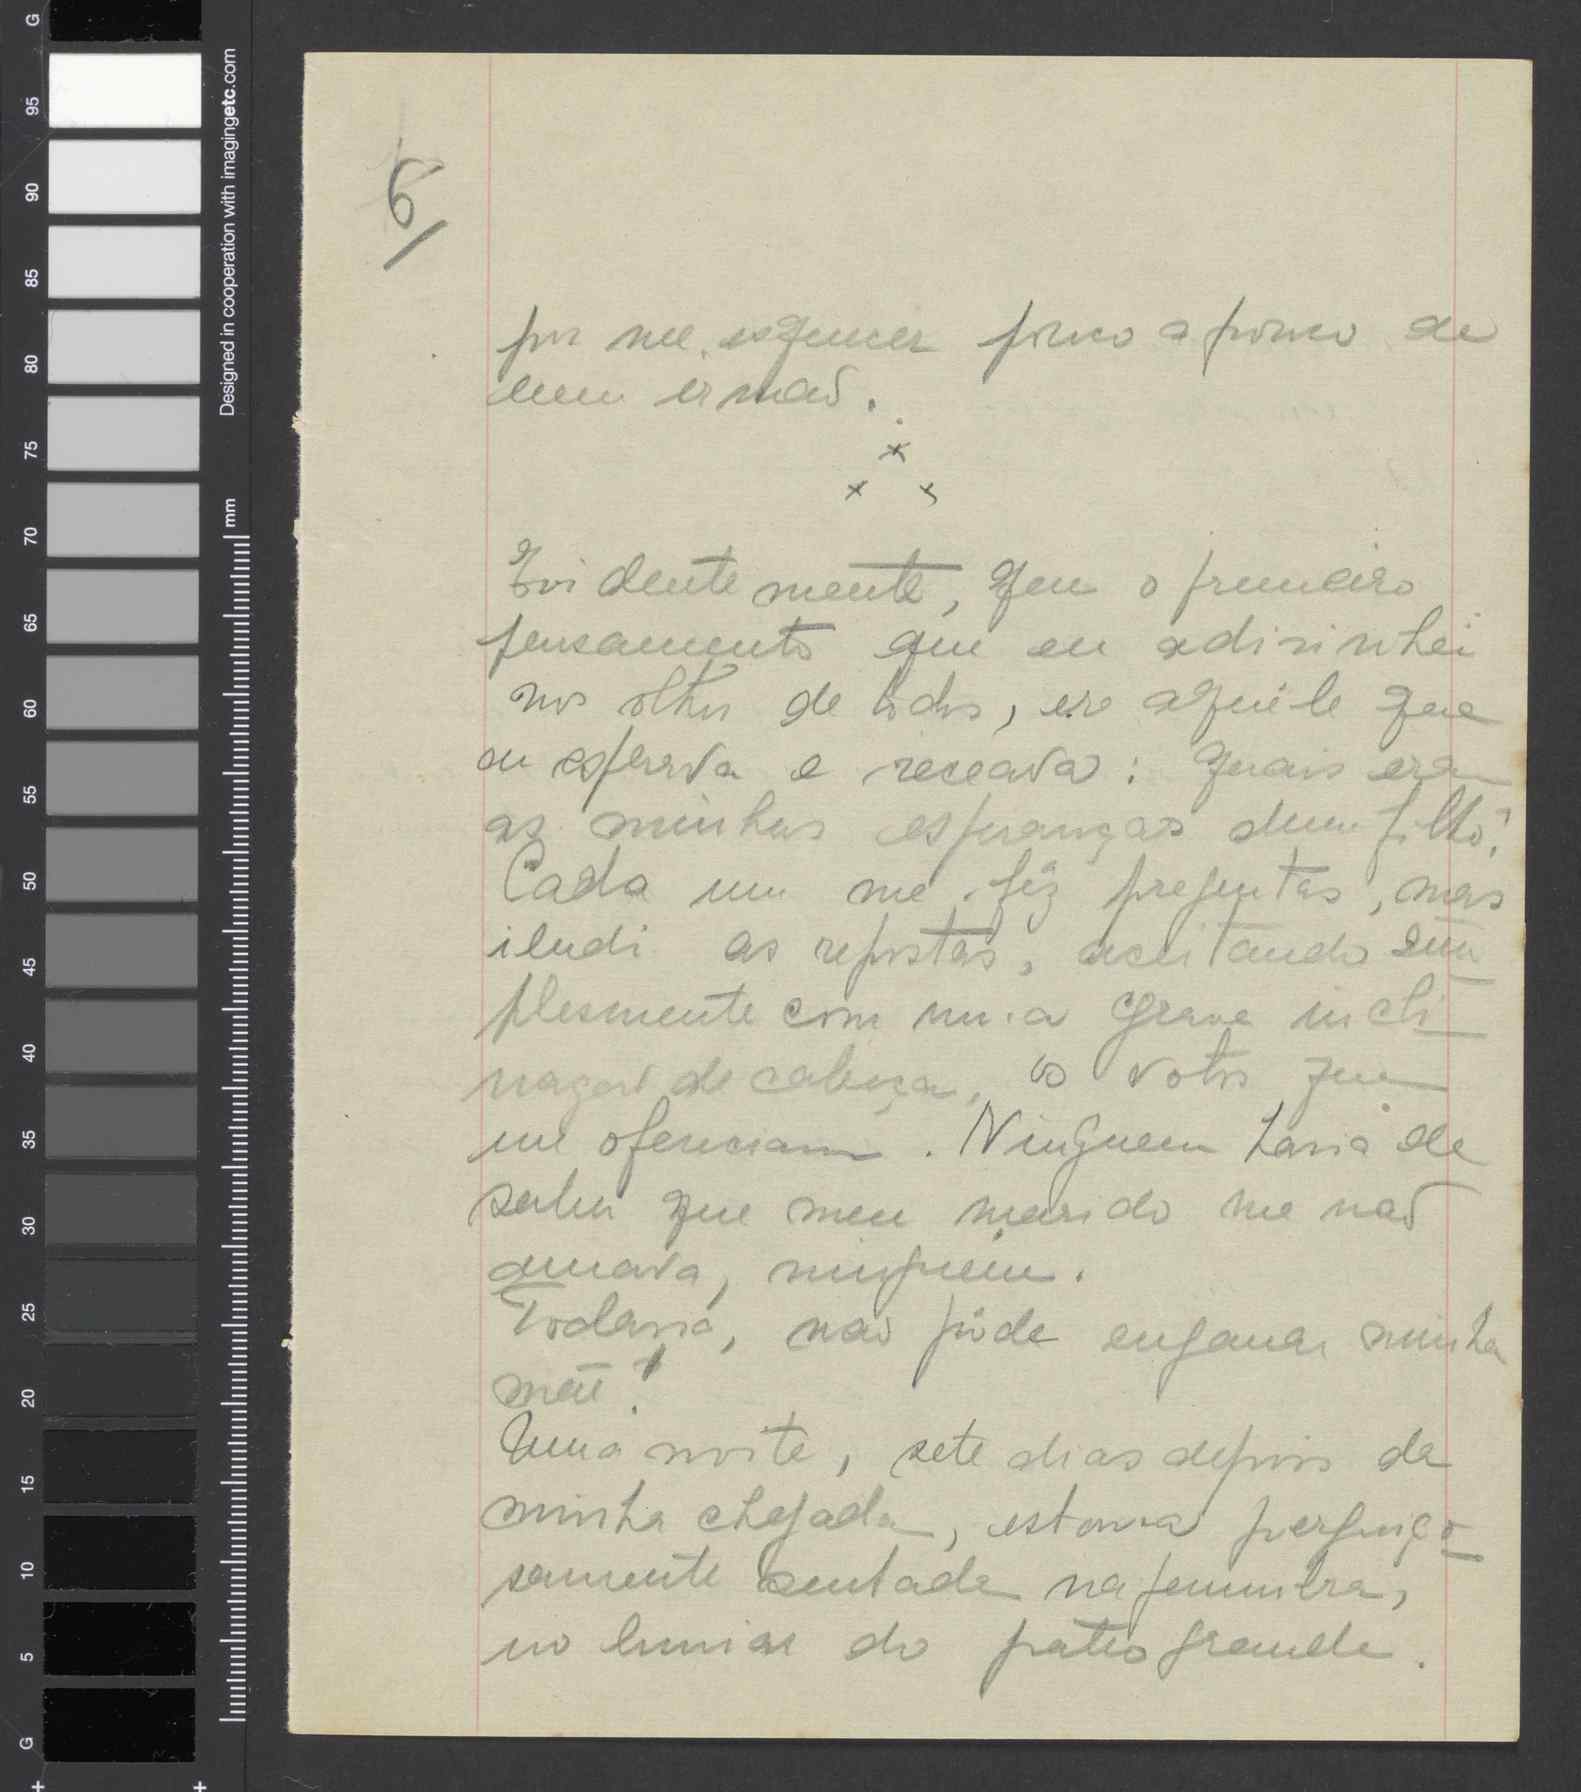 6/
por me esquecer pouco a pouco de
meu irmaõ.
x
x x
Evidentemente, que o primeiro
pensamento que eu adivinhei
nos olhos de todos, era aquêle que
eu esperava e receava: Quais eram
as minhas esperanças dum filho?
Cada um me fêz preguntas, mas
iludi as repostas, aceitando sim
plesmente com uma grave incli
naçaõ de cabeça, os votos que
me ofereciam. Ninguem havia de
saber que meu marido me naõ
amava, ninguém.
Todavia, naõ pude enganar minha
mãe!
Uma noite, sete dias depois da
minha chegada, estava preguiço
samente sentada na penumbra,
no limiar do pateo grande.
G 95 90 85 80 75 70 65 60 55 50 45 40 35 30 25 20 15 10 5 G
Designed in cooperation with imagingetc.com
mm